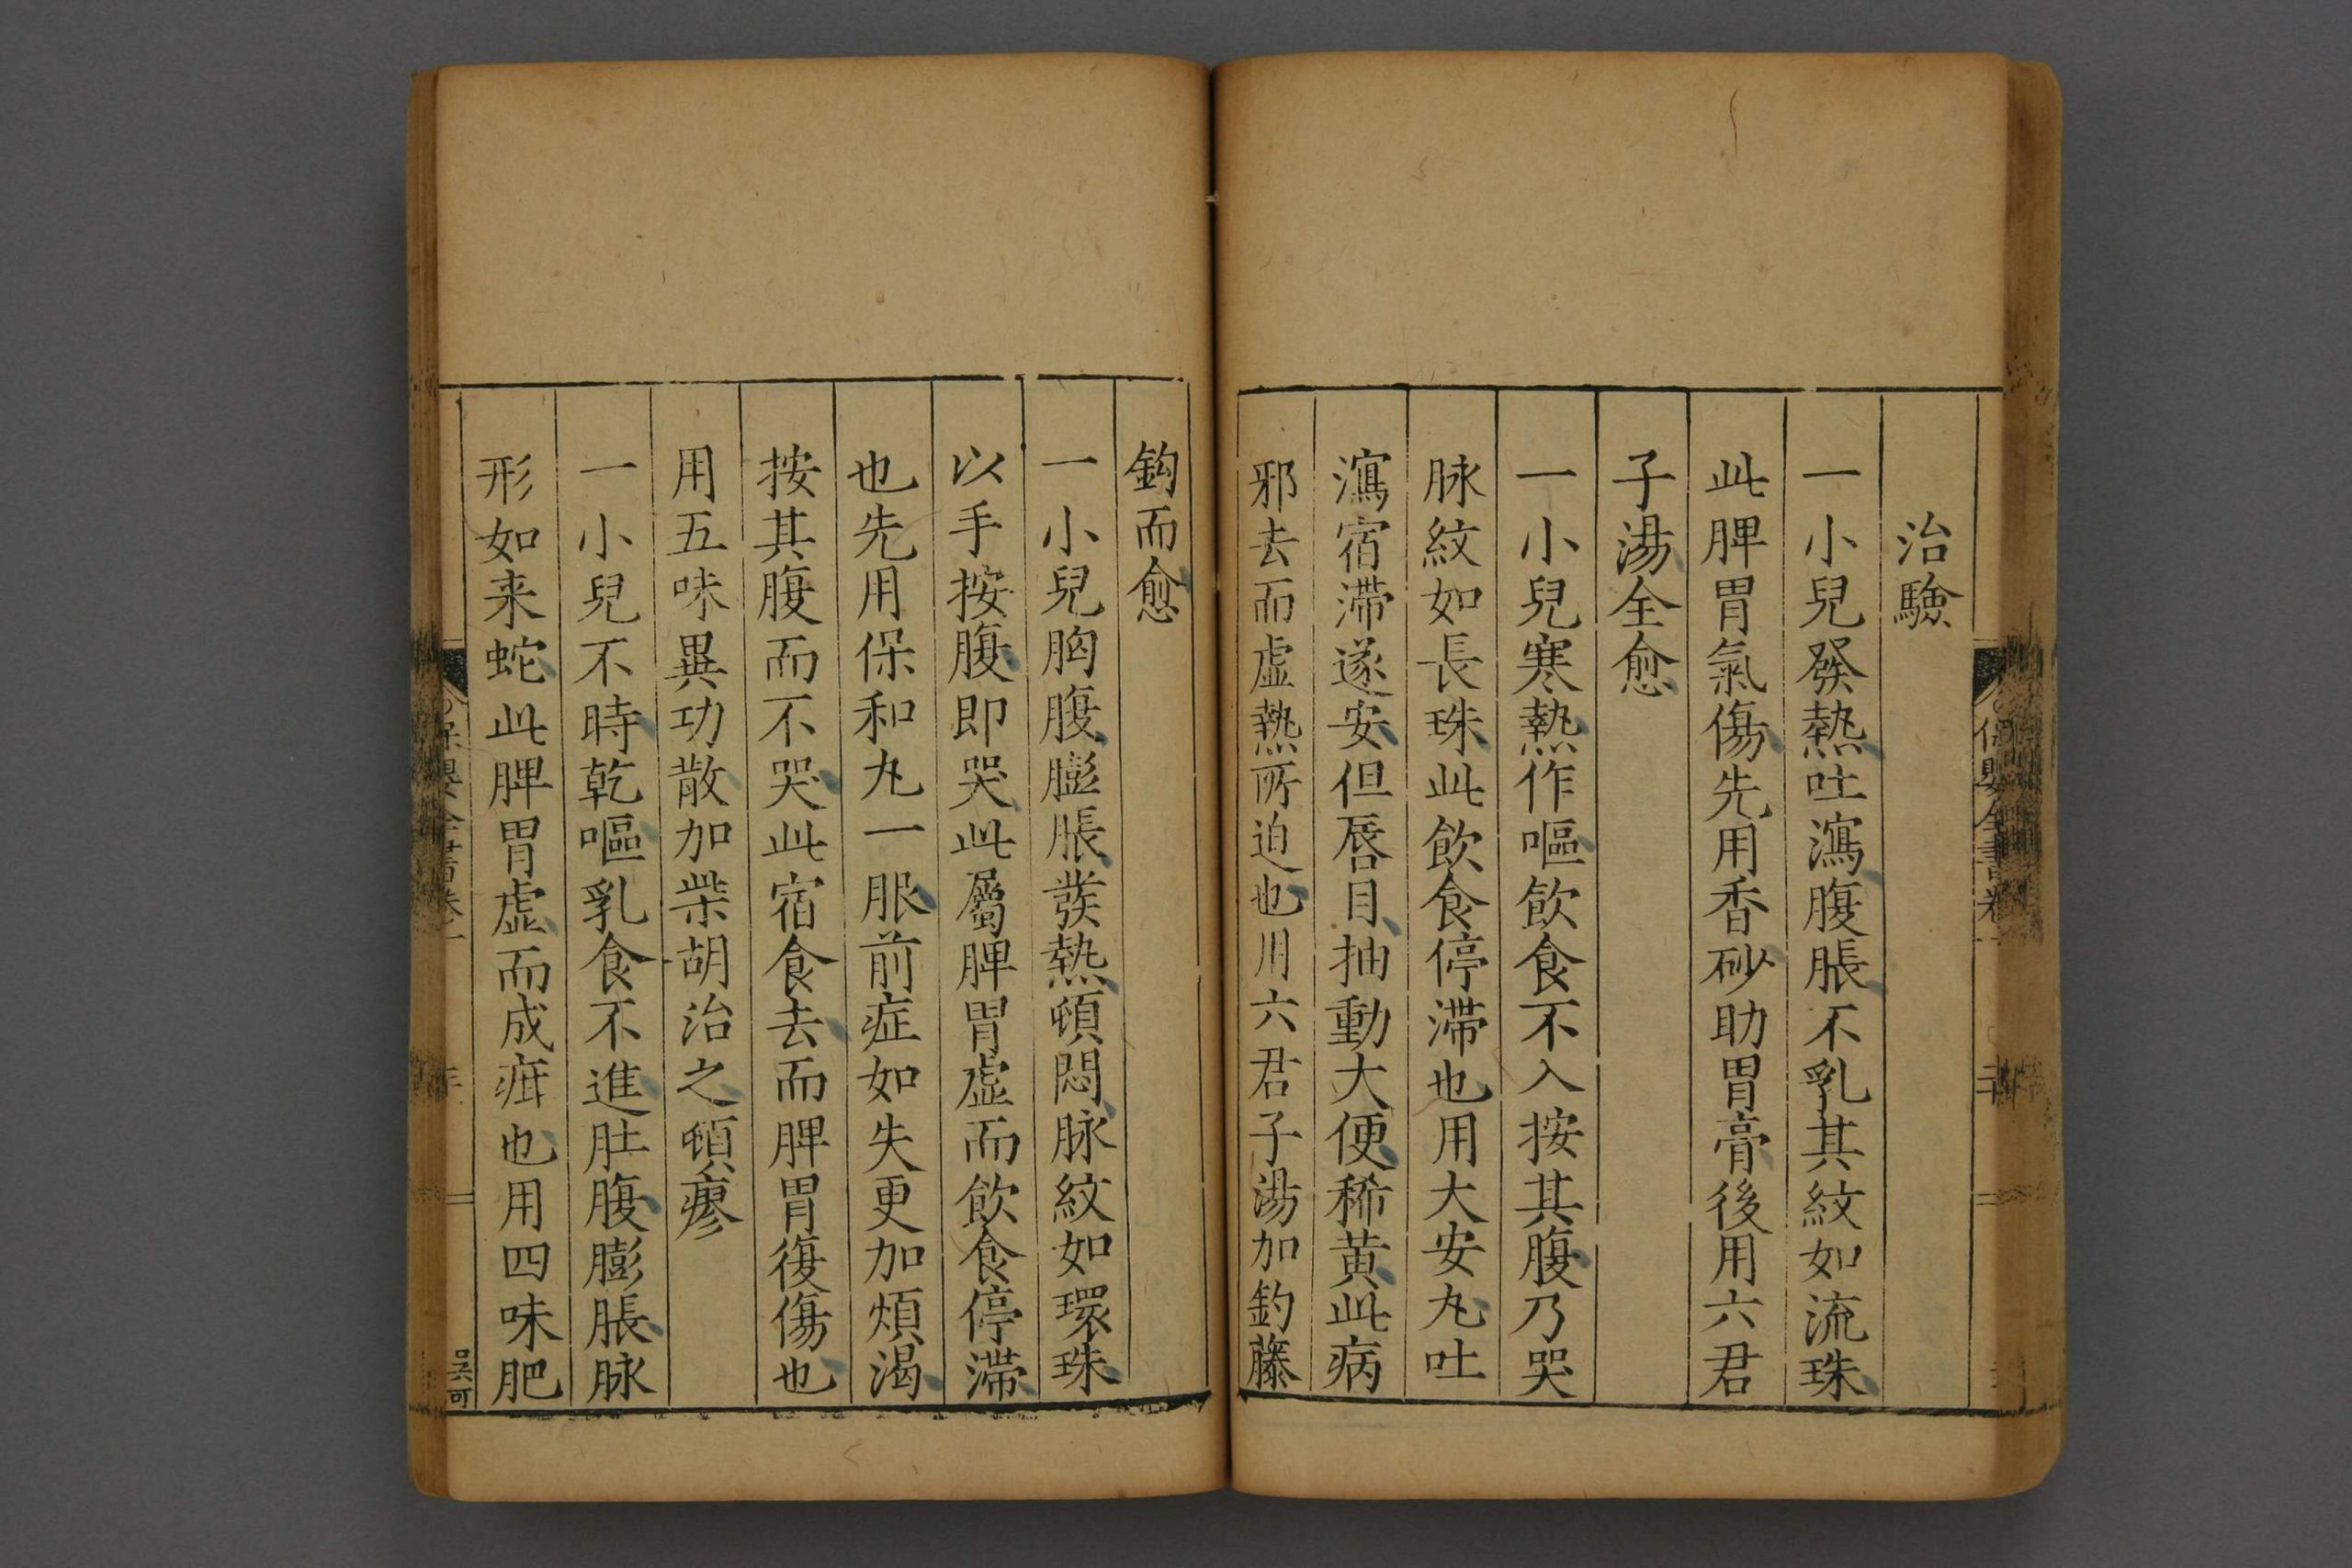 治驗
一小兒發熱吐瀉腹脹不乳其紋如流珠
此脾胃氣傷先用香砂助胃膏後用六君
子湯全愈
一小兒寒熱作嘔飲食不入按其腹乃哭
脉紋如長珠此飲食停滯也用大安丸吐
瀉宿滯遂安但唇目抽動大便稀黄此病
邪去而虛熱所迫也用六君子湯加釣藤
鈎而愈
一小兒胸腹膨脹發熱頓悶脉紋如環珠
以手按腹即哭此屬脾胃虛而飲食停滯
也先用保和丸一服前症如失更加煩渴
按其腹而不哭此宿食去而脾胃復傷也
用五味異功散加柴胡治之頓瘳
一小兒不時乾嘔乳食不進肚腹膨脹脉
形如来蛇此脾胃虛而成疳也用四味肥